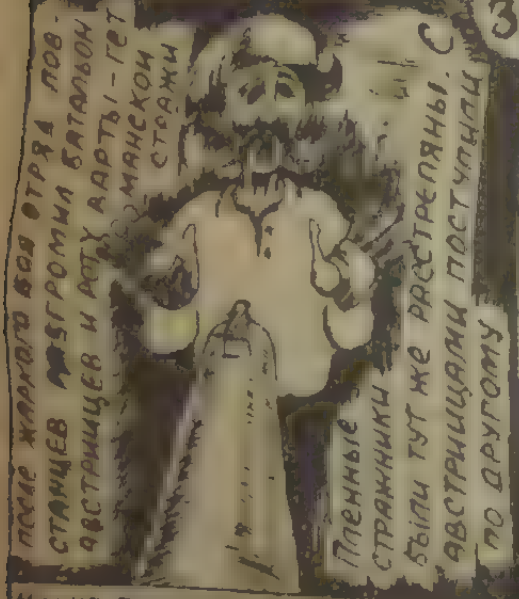 3
после жаркого боя отряд пов-
станцев разгромил батальон
австрийцев и роту варты-гет
манской
стражи
Пленные
стражники
были тут же расстреляны. С
австрийцами поступили
по другому